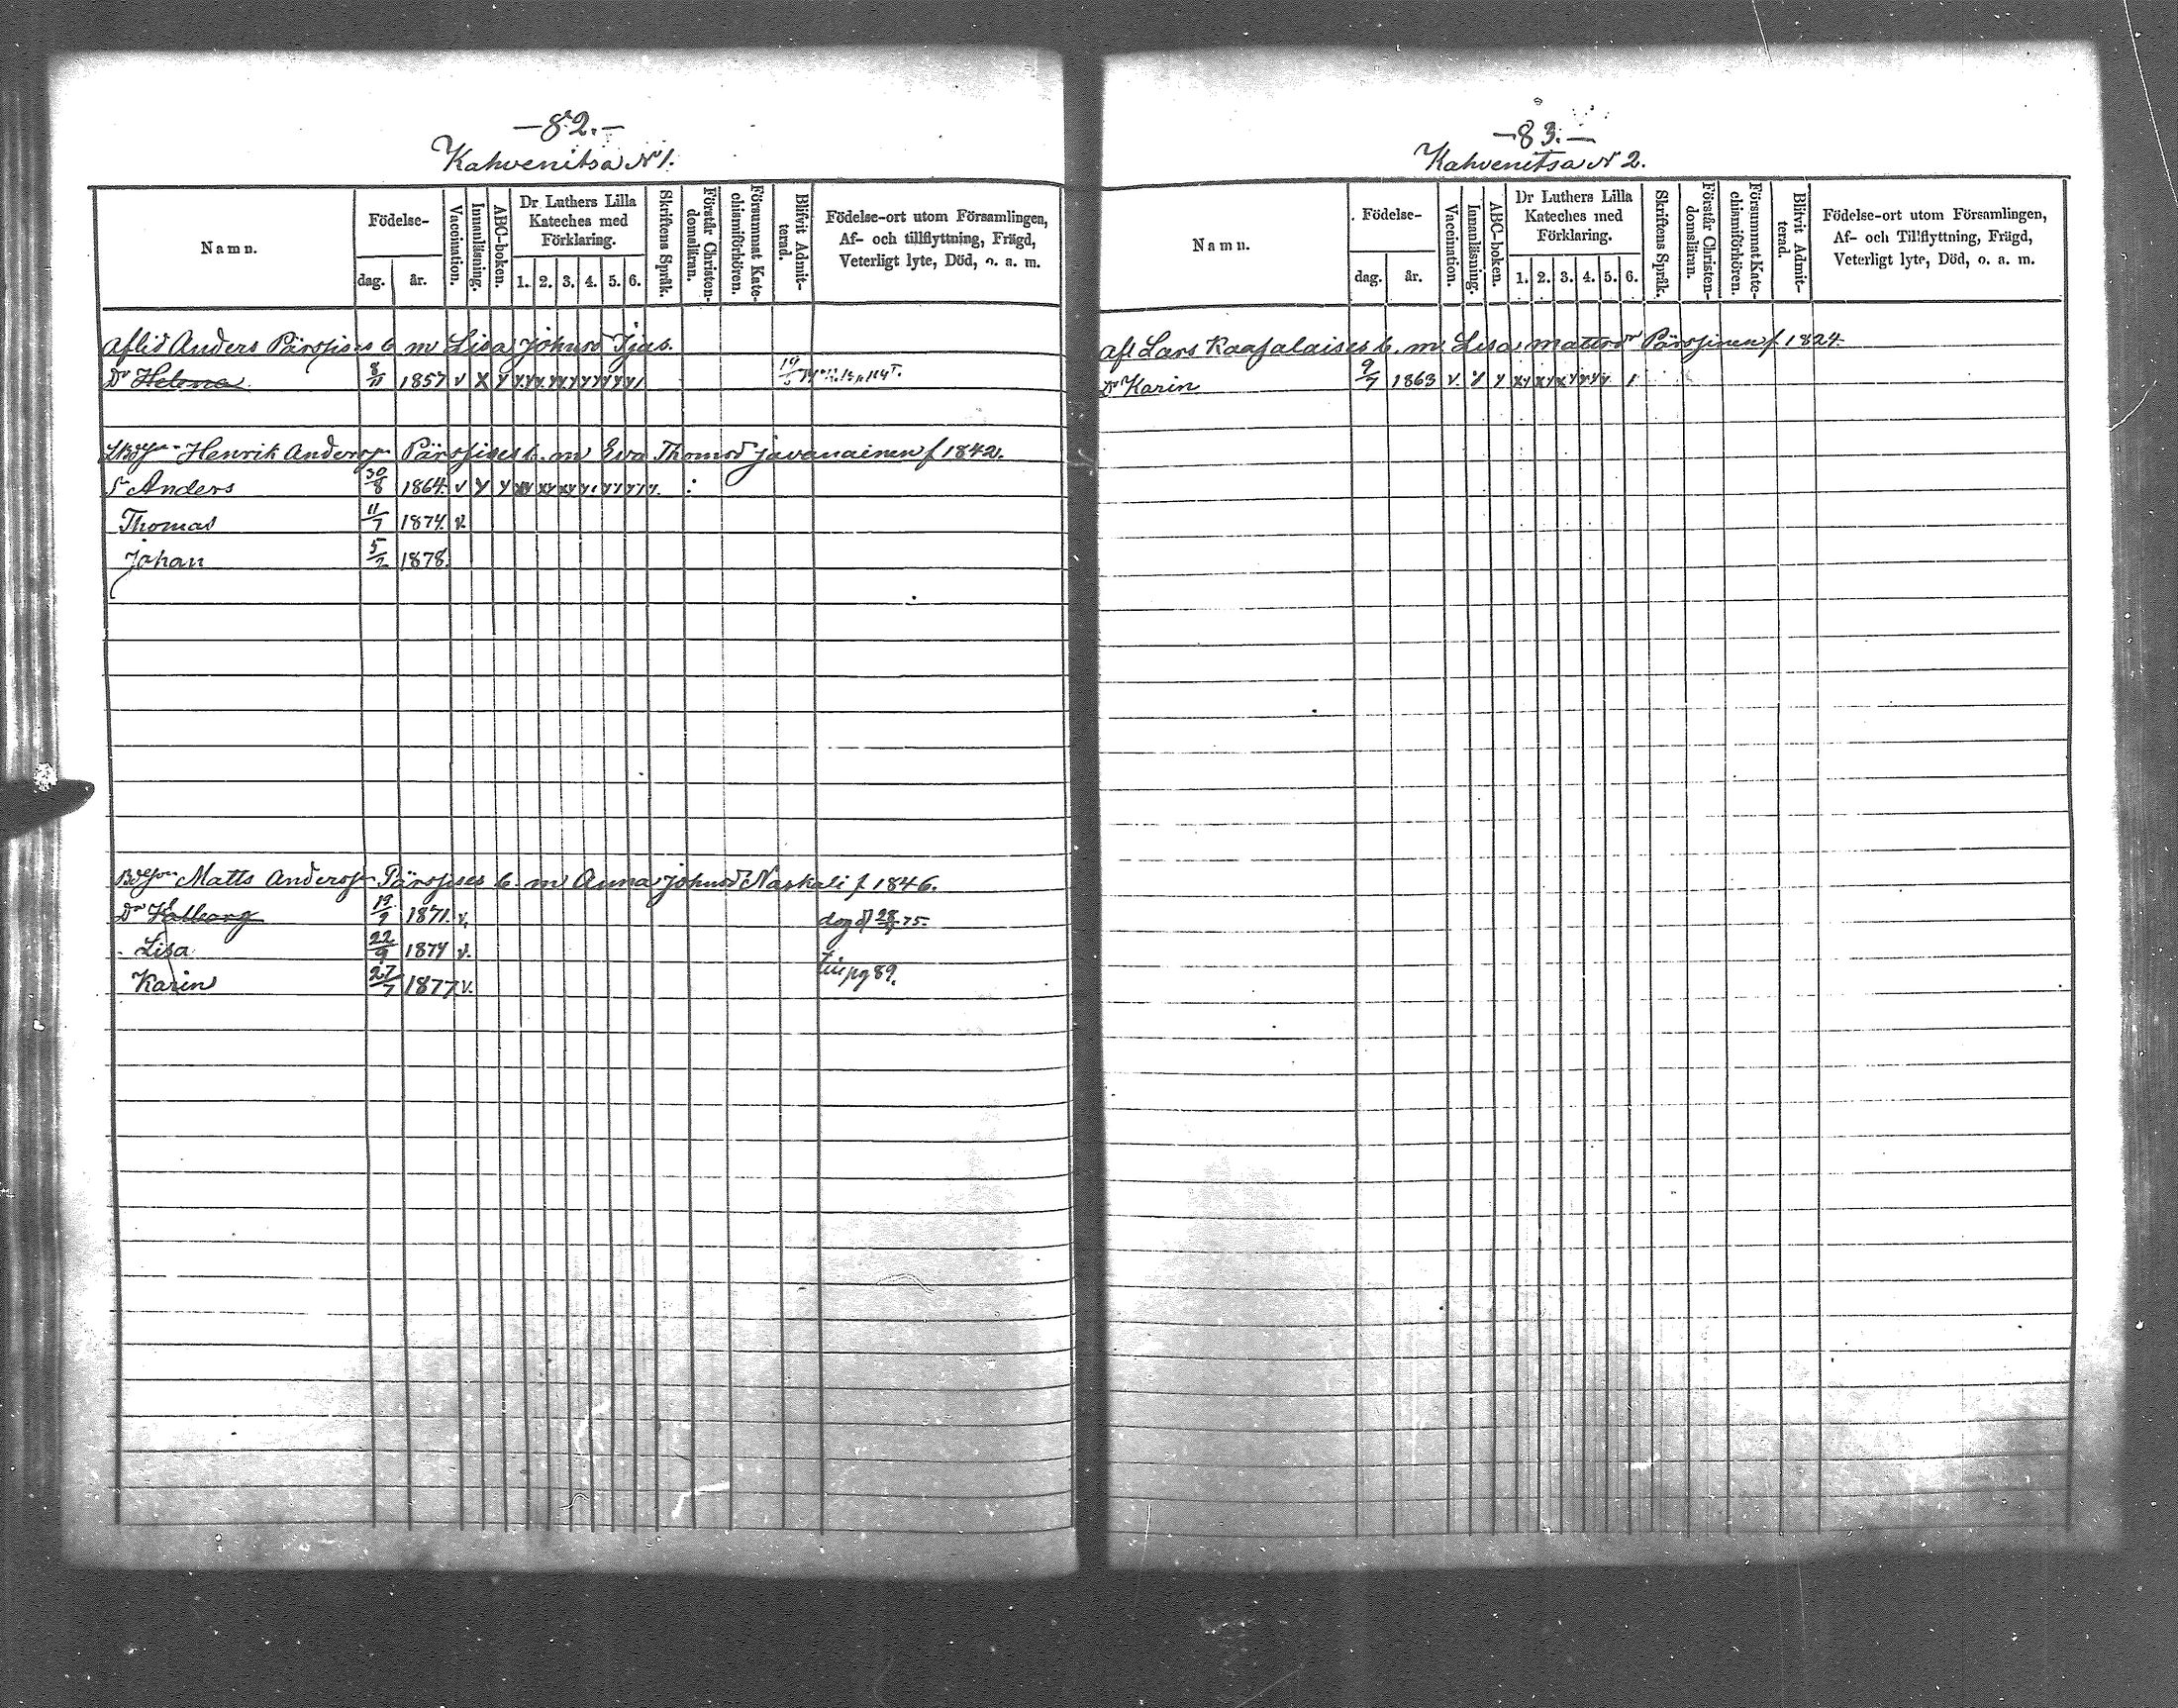 —82.—
Kahvenitsa N 1.
Namn. Födelse- dag. år. Vaccination. Innanläsning. ABC-boken. Dr Luthers Lilla Kateches med Förklaring. 1. 2. 3. 4. 5. 6. Skriftens Språk. Förstår Christen-domsläran. Försummat Kate-chismiförhören. Blifvit Admit-terad. Födelse-ort utom Församlingen, Af- och tillflyttning, Frägd, Veterligt lyte, Död, o. a. m.
Aflid Anders Pärssises b. m Lisa Johnsd Tjus.
Dr Helena 8/11 1857 v
Henrik Andersson Pärssises b. m Eva Thomsd Javanainen f 1842.
Sr Anders 30/8 1864. v
Thomas 11/7 1874. v.
Johan 5/2 1878.
Matts Andersson Pärssises b. m Anna Johnsd Naskali f 1846.
Dr Walborg 19/9 1871. v. dog d 28 75.
Lisa 22/9 1874 v.
Karin 27/7 1877 v. pg 89.
—83.—
Kahvenitsa N 2.
Namn. Födelse- dag. år. Vaccination. Innanläsning. ABC-boken. Dr Luthers Lilla Kateches med Förklaring. 1. 2. 3. 4. 5. 6. Skriftens Språk. Förstår Christen-domsläran. Försummat Kate-chismiförhören. Blifvit Admit-terad. Födelse-ort utom Församlingen, Af- och Tillflyttning, Frägd, Veterligt lyte, Död, o. a. m.
Afl Lars Kaasalaises b. m Lisa Mattsdr Pärssinen f 1824.
Dr Karin 9/7 1863 v.